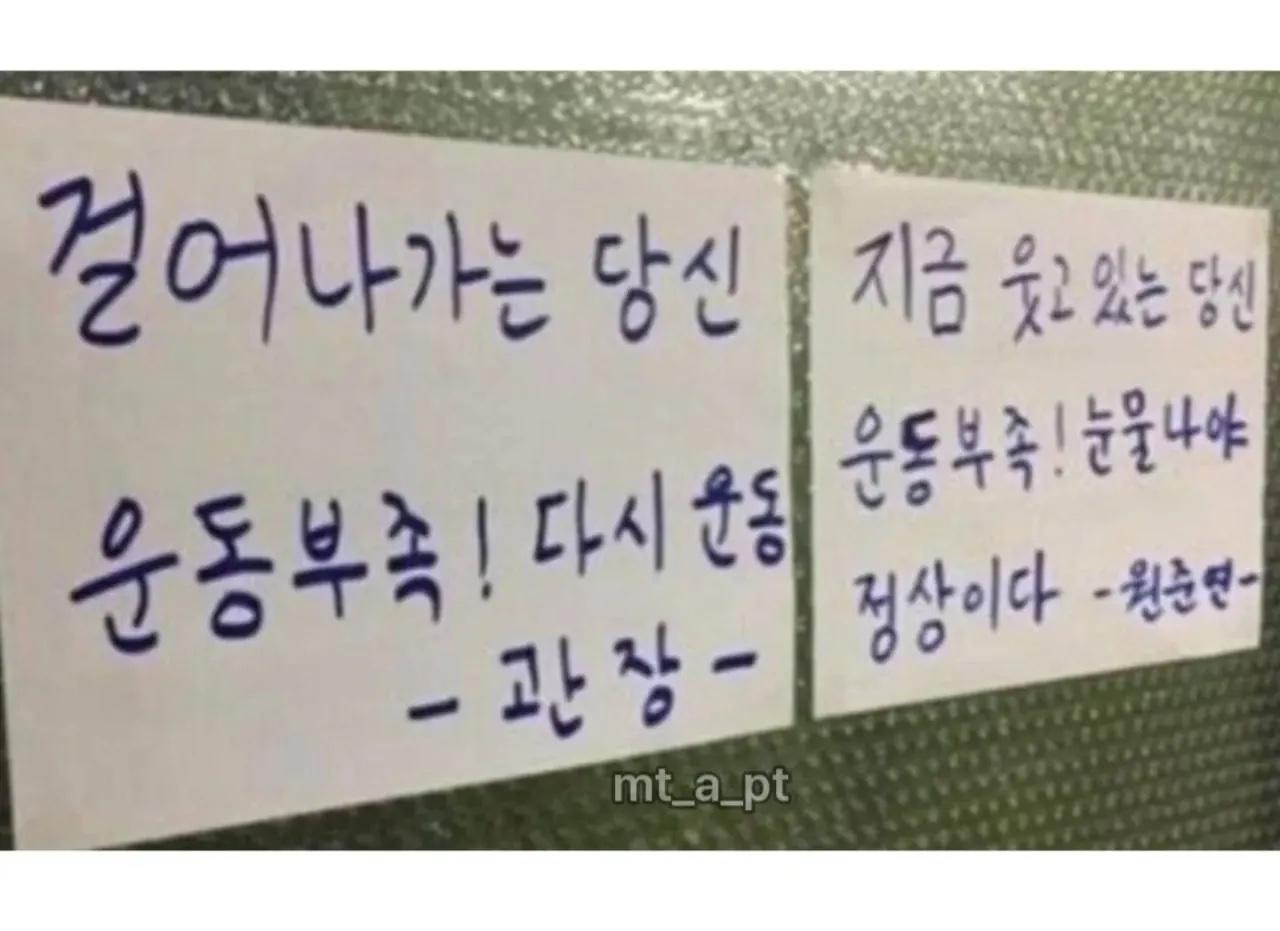 걸어나가는 당신
운동부족! 다시 운동
- 관장 -
지금 웃고 있는 당신
운동부족! 눈물나야
정상이다 -원준연-
mt_a_pt